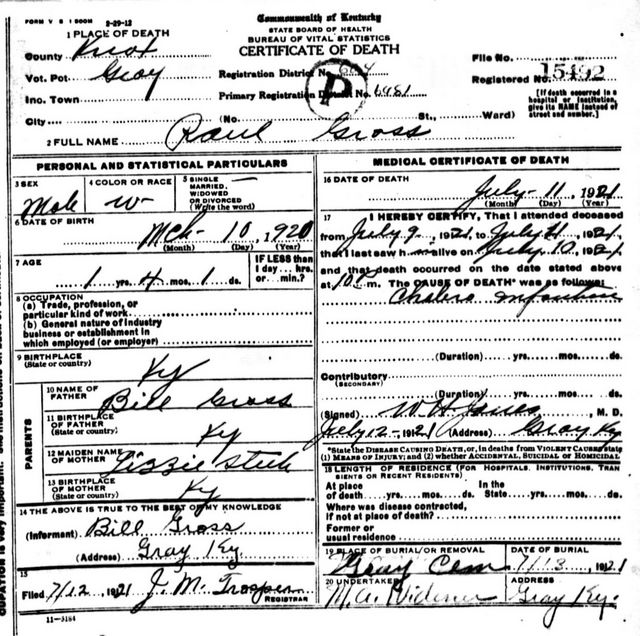 FORM V S 1 500M 2-29-12
Commonwealth of Kentucky
STATE BOARD OF HEALTH
BUREAU OF VITAL STATISTICS
CERTIFICATE OF DEATH
1 PLACE OF DEATH
County Knox
Vot. Pct Gray
Inc. Town
City (No. St., Ward)
Registration District No.
Primary Registration District No. 6481
P
File No.
15492
Registered No.
[If death occurred in a
hospital or institution,
give its NAME instead of
street and number.]
2 FULL NAME Paul Gross
PERSONAL AND STATISTICAL PARTICULARS
3 SEX Male
4 COLOR OR RACE W
5 SINGLE
MARRIED,
WIDOWED
OR DIVORCED
(Write the word)
6 DATE OF BIRTH
Mch 10, 1920
(Month) (Day) (Year)
7 AGE
1 yrs. 4 mos. 1 ds.
IF LESS than
1 day... hrs.
or... min.?
8 OCCUPATION
(a) Trade, profession, or
particular kind of work
(b) General nature of industry
business or establishment in
which employed (or employer)
9 BIRTHPLACE
(State or country) Ky
PARENTS
10 NAME OF
FATHER Bill Gross
11 BIRTHPLACE
OF FATHER
(State or country) Ky
12 MAIDEN NAME
OF MOTHER Lizzie
13 BIRTHPLACE
OF MOTHER
(State or country) Ky
14 THE ABOVE IS TRUE TO THE BEST OF MY KNOWLEDGE
(Informant) Bill Gross
(Address) Gray Ky.
15
Filed 7/12 1921 J. M. Trosper
REGISTRAR
11-3184
MEDICAL CERTIFICATE OF DEATH
16 DATE OF DEATH
July 11 1921
(Month) (Day) (Year)
17 I HEREBY CERTIFY, That I attended deceased
from July 9 1921, to July 11 1921,
that I last saw h alive on July 10 1921
and that death occurred on the date stated above
at 10 m. The CAUSE OF DEATH* was as follows:
Cholera Infantum
(Duration) yrs. mos. ds.
Contributory
(SECONDARY)
(Duration) yrs. mos. ds.
(Signed) W H Jones, M. D.
July 12 - 1921 (Address) Gray Ky
*State the DISEASE CAUSING DEATH, or, in deaths from VIOLENT CAUSES state
(1) MEANS OF INJURY; and (2) whether ACCIDENTAL, SUICIDAL or HOMICIDAL
18 LENGTH OF RESIDENCE (FOR HOSPITALS, INSTITUTIONS, TRAN
SIENTS OR RECENT RESIDENTS)
At place In the
of death yrs. mos. ds. State yrs. mos. ds.
Where was disease contracted,
if not at place of death?
Former or
usual residence
19 PLACE OF BURIAL OR REMOVAL
Gray Cem
DATE OF BURIAL
7/13 1921
20 UNDERTAKER
M. A. Widener
ADDRESS
Gray Ky.